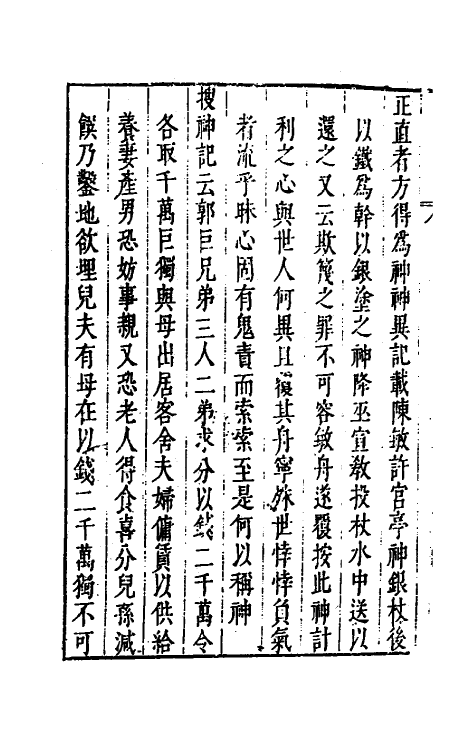 正直者方得爲神神異記載陳敏許官亭神銀杖後
以鐵爲幹以銀塗之神降巫宣敎投杖水中送以
還之又云欺篾之罪不可容敏舟遂覆按此神計
利之心與世人何異且覆其舟寧殊世悻悻負氣
者流乎昧心固有鬼責而索索至是何以稱神
搜神記云郭巨兄弟三人二弟求分以錢二千萬令
各取千萬巨獨與母出居客舍夫婦傭賃以供給
養妻產男恐妨事親又恐老人得食喜分兒孫減
饌乃鑿地欲埋兒夫有母在以錢二千萬獨不可